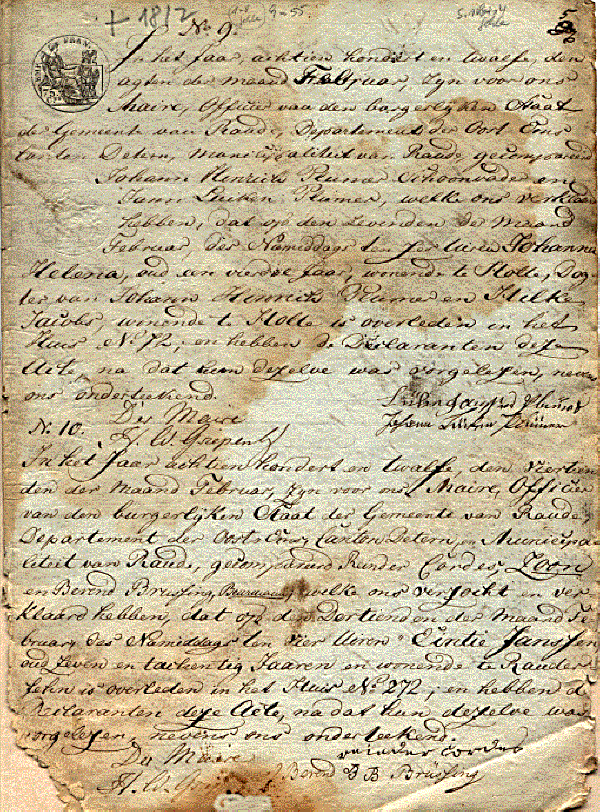 + 1812
No. 9.
In het Jaar, achtien hondert en twalfe, den
agten der maand Februar, zyn voor ons
Maire, Officier van den burgerlyken Staat
de Gemeente van Raude, Departement der Oost Eems
Canton Detern, Municipaliteit van Raude, gecompareerd
Johann Henrich Plumer en
Jann Plumer, welke ons verklaard
hebben, dat op den Sevenden der Maand
Februar, des Namiddags ten Uren Johanna
Helena, oud een vierde Jaar, wonende te Holle, Dog-
ter van Johann Hinrich Plumer en Hilke
Jacobs, wonende te Holle is overleden in het
Huis No. 72, en hebben de Declaranten deze
Acte, na dat hun dezelve was vorgelezen, nevens
ons onderteekend.
De Maire
No. 10.
In het Jaar achtien hondert en twalfe, den viertien
den der Maand Februar, zyn voor ons Maire, Officier
van den burgerlyken Staat der Gemeente van Raude,
Departement der Oost Eems, Canton Detern, en Municipa-
liteit van Raude, gecompareerd Reinder Cordes, Zoon
en Berend Brussing, welke ons verzocht en ver-
klaard hebben, dat op den Dertienden der Maand Fe-
bruary des Namiddags ten vier Uren Janssen
oud zeven en Jaaren en wonende te Rauder-
fehn is overleden in het Huis No. 272, en hebben de
Declaranten deze Acte, na dat hun dezelve was
vorgelezen, nevens ons onderteekend.
De Maire reinder cordes
Berend B B Brüssing